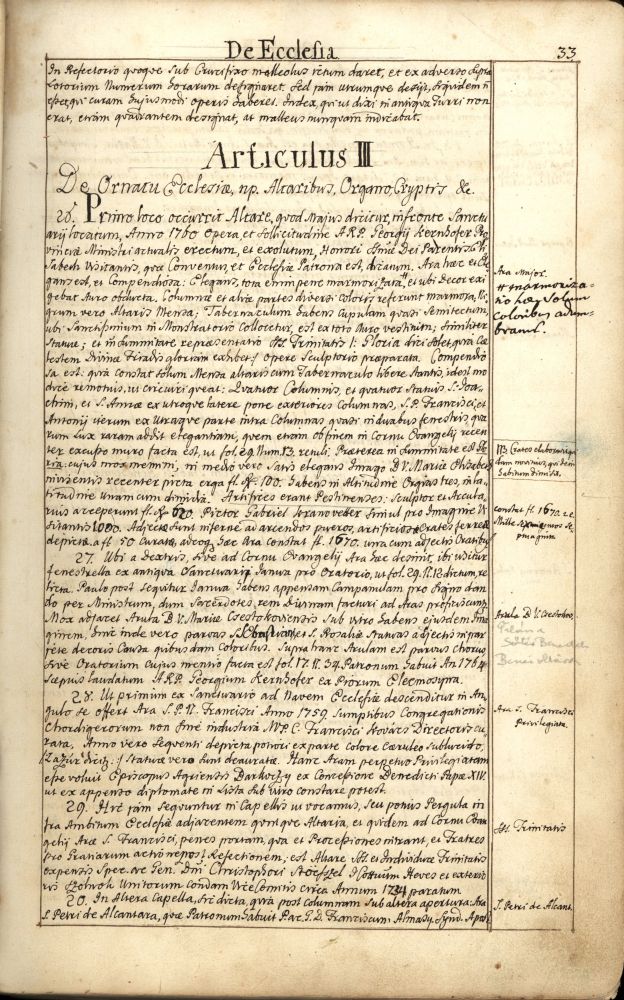 De Ecclesia
33
In Refectorio quoque sub Crucifixo malleolus ictum daret, et ex adverso supra
Lotorium Numerum horarum designaret. Sed jam utrumque desijt, siquidem n
esset, qui curam hujusmodi operis haberet. Index, qui ut dixi in antiqua Turri non
erat, etiam quadrantem designat, at malleus nunquam indicabat.
Articulus III
De Ornatu Ecclesiæ, np. Altaribus, Organo, Cryptis &c.
26. Primo loco occurrit Altare, quod Majus dicitur, in fronte Sanctu
arij locatum, Anno 1760 opera, et sollicitudine A.R.P. Georgij Kernhofer Pro
vinciæ Ministri actualis erectum, et exolutum, Honori Dei Parentis Eli
sabeth Visitantis, quæ Conventus, et Ecclesiæ Patrona est, dicatum. Ara hæc et Ele
gans est, et Compendiosa: Elegans, tota etenim pene marmorizata, et ubi Decor exi
gebat Auro obducta. Columnæ et aliæ partes diversi coloris referunt marmora,
grum vero Altaris Mensa; Tabernaculum habens Cupulam quasi Semitectum,
ubi Sanctissimum in Monstratorio Collocetur, est ex toto Auro vestitum; similiter
Statuæ; et in summitate repræsentatio SS. Trinitatis /: Gloria dici solet, quia Cœ
lestem Divinæ Triadis gloriam exhibet :/ opere Sculptorio præparata. Compendio
sa est: quia constat solum Mensa altaris cum Tabernaculo libere stantis, id est mo
dice remotius, ut circuiri queat: Quatuor Columnis, et quatuor Statuis S. Joa
chim, et S. Annæ ex utroque latere pone exteriores Columnas, S.P. Francisci, et
Antonij iterum ex utraque parte intra Columnas quasi in duabus fenestris qua
rum Lux raram addit elegantiam, quem etiam ob finem in Cornu Evangelij recen
ter excusso muro facta est, ut fol. 29. Num. 13. retuli. Præterea in summitate est Glo
ria: cujus mox memini, in medio vero satis elegans Imago B.V. Mariæ Elisabeth
invisentis recenter picta erga fl. Rh. 100. habens in Altitudine Orgias tres, in la
titudine unam cum dimidia. Artifices erant Pestinenses: Sculptor et Arcula
rius acceperunt fl. Rh. 620. Pictor Gabriel Uranovetzer simul pro Imagine Vi
sitantis 1000. Adjectæ sunt inferne, ad arcendos pueros, artificiosæ Crates ferreæ
depictæ a fl. 50 Curatæ, adeoq. hæc Ara Constat fl. 1670. una cum adjectis Cratibus
27. Ubi a dextris, sive ad Cornu Evangelij Ara hæc desinit, ibi visitur
fenestrella ex antiqua Sanctuarij Janua pro Oratorio, ut fol. 29. N. 12 dictum, re
licta. Paulo post sequitur Janua habens appensam Campanulam pro signo dan
do per Ministrum, dum Sacerdotes, rem Divinam facturi ad Aras proficiscuntur.
Mox adjacet Arula B.V. Mariæ Csestokoviensis sub vitro habens ejusdem Ima
ginem, hinc inde vero parvas S. Sebastiani, et S. Rosaliæ Statuas adjectis in pa
riete decoris Causa quibusdam Coloribus. Supra hanc Arulam est parvus Chorus
sive Oratorium Cujus mentio facta est fol. 17. N. 34. Patronum habuit An. 1764.
sæpius laudatum A.R.P. Georgium Kernhofer ex Piorum Eleemosyna.
28. Ut primum ex Sanctuario ad Navem Ecclesiæ descenditur in An
gulo se offert Ara S.P.N. Francisci Anno 1759 Sumptibus Congregationis
Chordigerorum non sine industria V.P.C. Francisci Kovács Directoris cu
rata, Anno vero sequenti depicta potiori ex parte Colore Cæruleo sublucido,
/: Lazúr dicto: :/ Statuæ vero sunt deauratæ. Hanc Aram perpetuo Privilegiatam
esse voluit Episcopus Agriensis Barkotzy ex Concessione Benedicti Papæ XIV.
ut ex appenso diplomate in Lista sub vitro constare potest.
29. Hic jam sequuntur in Capellis ut vocamus, seu potius Pergula in
fra Ambitum Ecclesiæ adjacentem quinque Altaria, et quidem ad Cornu Evan
gelij Aræ S. Francisci, penes portam, qua et Processiones intrant, et Fratres
pro Gratiarum actione post Refectionem, est Altare SS. et Individuæ Trinitatis
expensis Spec. ac Gen. Dni Christophori Stoeszel I. Cottuum Heves et exterio
ris Szolnok Unitorum condam ViceComitis circa Annum 1734 paratum
20. In Altera Capella, sic dicta, quia post columnam sub altera apertura: Ara
S. Petri de Alcantara, quæ Patronum habuit Par. G.D. Franciscum Almásy Synd. Apost.
Ara Major.
# marmoriza-
tio hæc solum
coloribus adum-
bravit.
N3. Crates elaboratas
dum novimus, quidem
habitum dimisit.
constat fl. 1670. i.e.
Mille sexcentos se-
ptuaginta
Arula B.V. Csestohov.
Ara S. Francisci
Privilegiata.
SS. Trinitatis
S. Petri de Alcant.